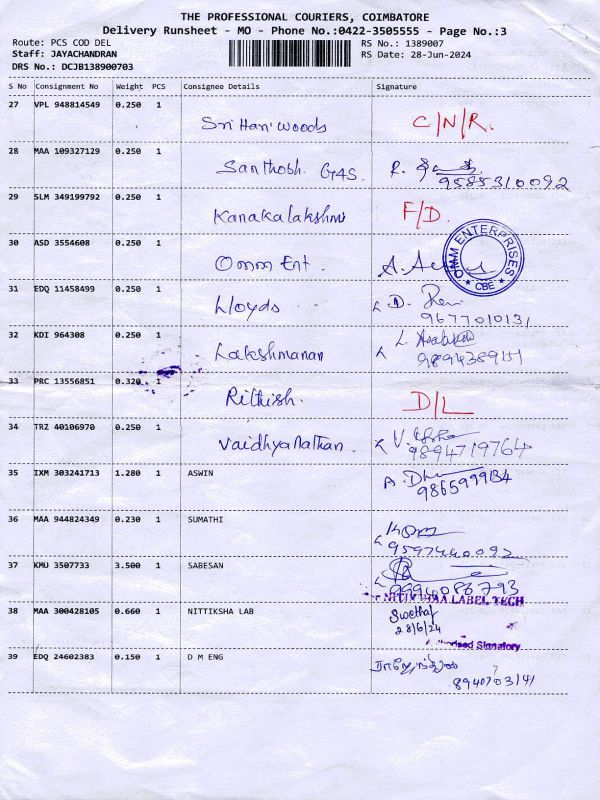 THE PROFESSIONAL COURIERS, COIMBATORE
Delivery Runsheet - MO - Phone No.:0422-3505555 - Page No.:3
Route: PCS COD DEL
RS No.: 1389007
Staff: JAYACHANDRAN
RS Date: 28-Jun-2024
DRS No.: DCJB138900703
S No Consignment No Weight PCS Consignee Details Signature
27 VPL 948814549 0.250 1 Sri Hari Woods C/N/R.
28 MAA 109327129 0.250 1 Santhosh. G4S. R.
9585310092
29 SLM 349199792 0.250 1 Kanakalakshmi F/D.
30 ASD 3554608 0.250 1 Omm Ent. A.
OMM ENTERPRISES
★ CBE ★
31 EDQ 11458499 0.250 1 Lloyds D.
9677010131
32 KDI 964308 0.250 1 Lakshmanan L
9894389151
33 PRC 13556851 0.320 1 Rithish. D/L
34 TRZ 40106970 0.250 1 Vaidhyanathan. V.
9894719764
35 IXM 303241713 1.280 1 ASWIN A.
9865999134
36 MAA 944824349 0.230 1 SUMATHI
9597440092
37 KMU 3507733 3.500 1 SABESAN
9994086793
38 MAA 300428105 0.660 1 NITTIKSHA LAB
NITTIKSHAA LABEL TECH
Swetha
28/6/24
Authorised Signatory
39 EDQ 24602383 0.150 1 D M ENG
8940703141